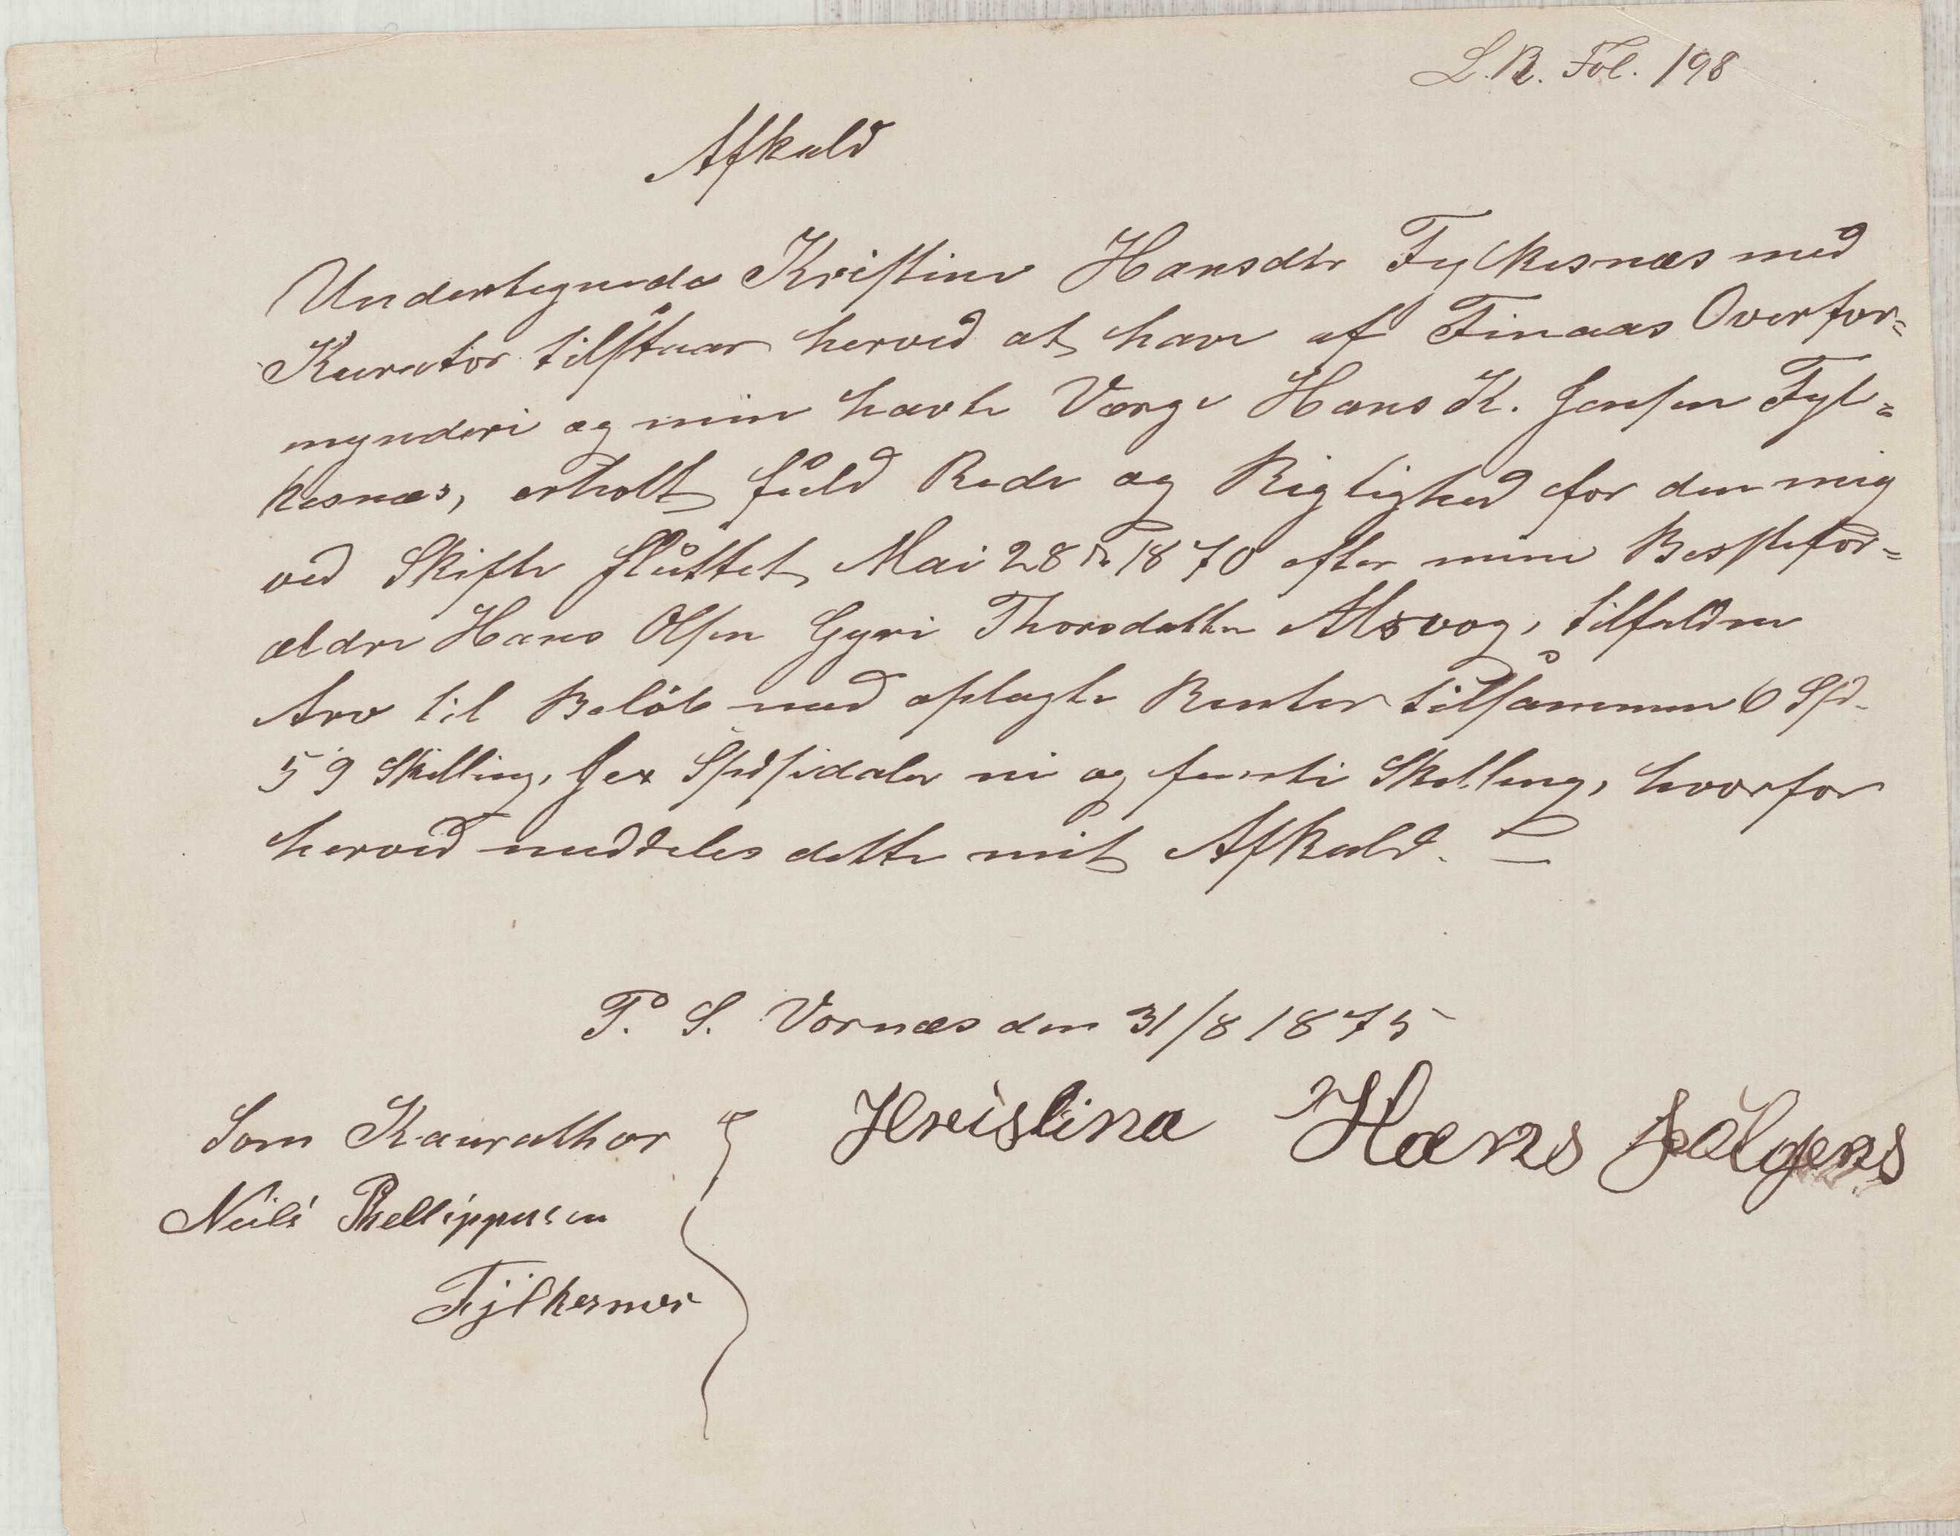 L.B. Fol. 198
Afkald
Undertegnede Kristine Hansdtr Fylkesnæs med
Kurator tilstaar herved at have af Finaas Overfor=
mynderi og min havte Værge Hans K. Jensen Fyl=
kesnæs, erholt fuld Rede og Rigtighed for den mig
ved Skifte sluttet Mai 28de 1870 efter mine Bestefor=
ældre Hans Olsen Gyri Thorsdatter Alsvog, tilfaldne
Arv til Beløb med oplagte Renter tilsammen 6 Spd.
59 Skilling, Sex Spesidaler ni og femti Skilling, hvorfor
herved meddeles dette mit Afkald.
T. S. Vornæs den 31/8 1875
Som Kaurathor
Neils Phellippusen
Fÿlkesnes
Kristina Hans